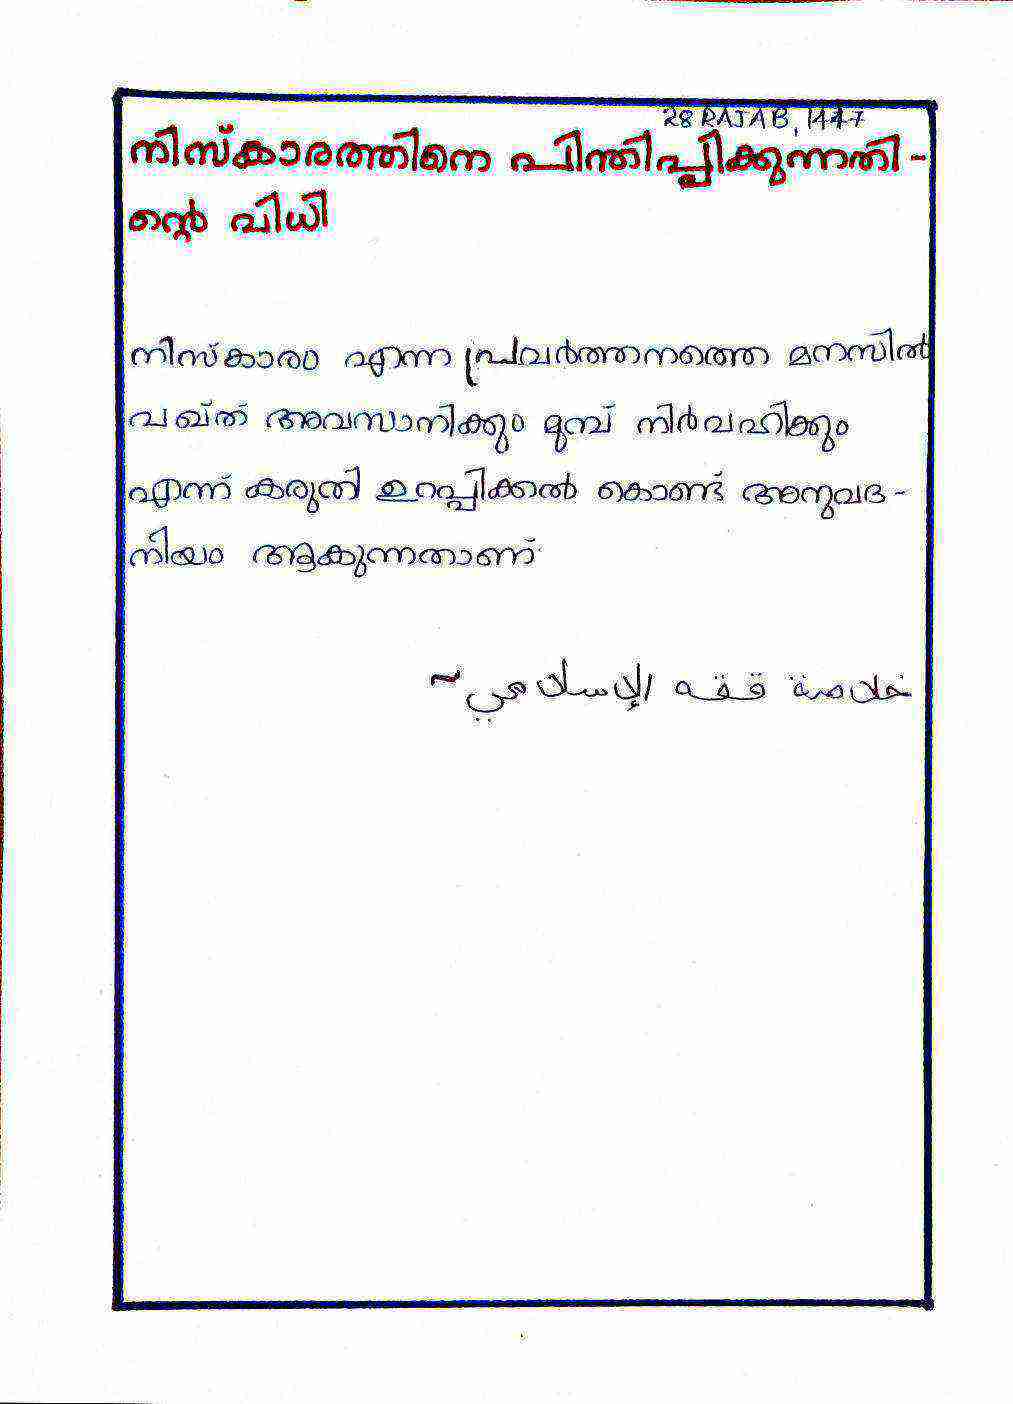 28 RAJAB, 1447
നിസ്കാരത്തിനെ പിന്തിപ്പിക്കുന്നതി-
ന്റെ വിധി
നിസ്കാരം എന്ന പ്രവർത്തനത്തെ മനസിൽ
വഖ്ത് അവസാനിക്കും മുമ്പ് നിർവഹിക്കും
എന്ന് കരുതി ഉറപ്പിക്കൽ കൊണ്ട് അനുവദ-
നീയം ആകുന്നതാണ്
خلاصة فقه الإسلامي ~